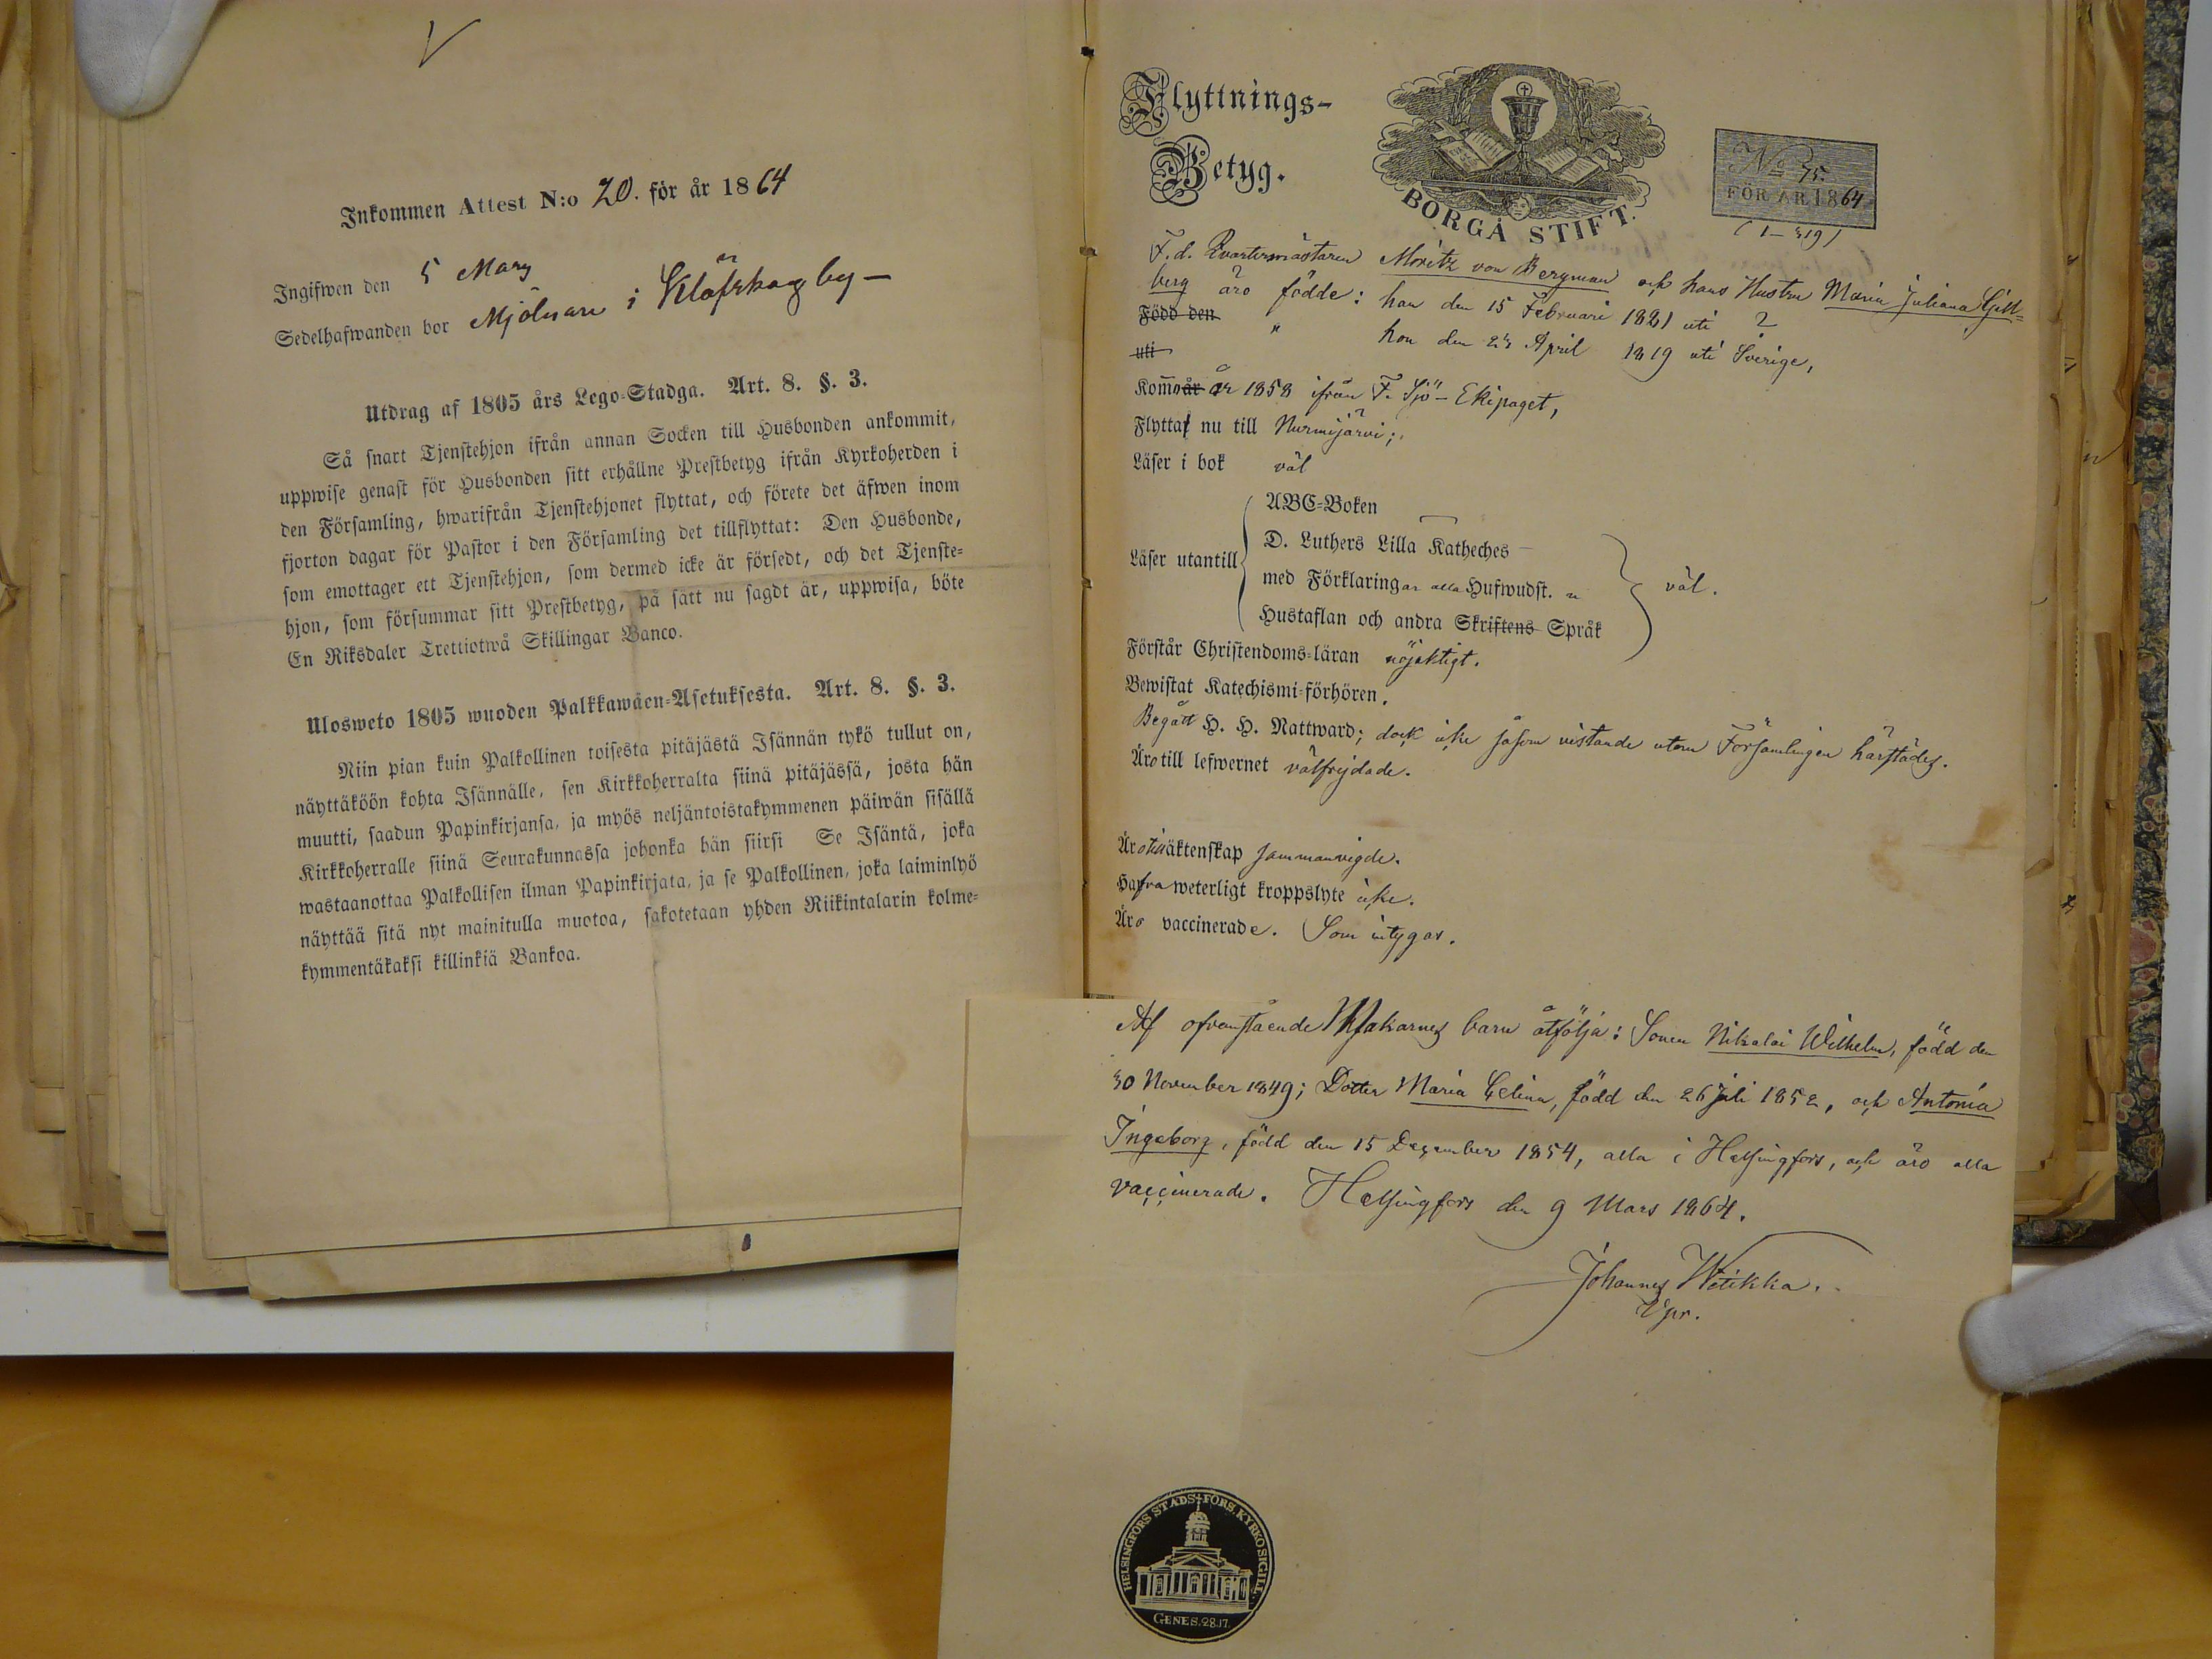 Inkommen Attest N:o 20. för år 1864
Ingifwen den 5 Mars
Sedelhafwanden bor Mjölnare i Klöfskog by –
Utdrag af 1805 års Lego-Stadga. Art. 8. §. 3.
Så snart Tjenstehjon ifrån annan Socken till Husbonden ankommit,
uppwise genast för Husbonden sitt erhållne Prestbetyg ifrån Kyrkoherden i
den Församling, hwarifrån Tjenstehjonet flyttat, och förete det äfwen inom
fjorton dagar för Pastor i den Församling det tillflyttat: Den Husbonde,
som emottager ett Tjenstehjon, som dermed icke är försedt, och det Tjenste-
hjon, som försummar sitt Prestbetyg, på sätt nu sagdt är, uppwisa, böte
En Riksdaler Trettiotwå Skillingar Banco.
Ulosweto 1805 wuoden Palkkawäen-Asetuksesta. Art. 8. §. 3.
Niin pian kuin Palkollinen toisesta pitäjästä Isännän tykö tullut on,
näyttäköön kohta Isännälle, sen Kirkkoherralta siinä pitäjässä, josta hän
muutti, saadun Papinkirjansa, ja myös neljäntoistakymmenen päiwän sisällä
Kirkkoherralle siinä Seurakunnassa johonka hän siirsi Se Isäntä, joka
wastaanottaa Palkollisen ilman Papinkirjata, ja se Palkollinen, joka laiminlyö
näyttää sitä nyt mainitulla muotoa, sakotetaan yhden Riikintalarin kolme-
kymmentäkaksi killinkiä Bankoa.
Flyttnings-
Betyg.
BORGÅ STIFT.
No 75.
FÖR ÅR 1864
(1–319)
F. d. Qvartermästaren Moritz von Bergman och hans Hustru Maria Juliana
berg äro födde: han den 15 Februari 1821 uti ?
Född den " hon den April 1819 uti Sverige,
uti
Kom̅o år år 1858 ifrån F. Sjö-Ekipaget,
Flytta nu till Nurmijärvi;
Läser i bok väl
Läser utantill
ABC-Boken
D. Luthers Lilla Katheches
med Förklaringar alla Hufwudst.
Hustaflan och andra Skriftens Språk
väl.
Förstår Christendoms-läran nöjaktigt.
Bewistat Katechismi-förhören,
Begått H. H. Nattward; dock icke såsom vistande utom Församlingen härstädes.
Äro till lefwernet välfrejdade.
Äro till äktenskap sammanvigde.
Hafva weterligt kroppslyte icke.
Äro vaccinerade. Som intygar.
Af ofvanstående Makarnes barn åtfölja: Sonen Nikolai Wilhelm, född den
30 November 1849; Dotter Maria Celina, född den 26 Juli 1852, och Antonia
Ingeborg, född den 15 December 1854, alla i Helsingfors, och äro alla
vaccinerade. Helsingfors den 9 Mars 1864.
Johannes Wetikka.
Vpr.
HELSINGFORS STADS FÖRS. KYRKOSIGILL.
GENES. 28.17.